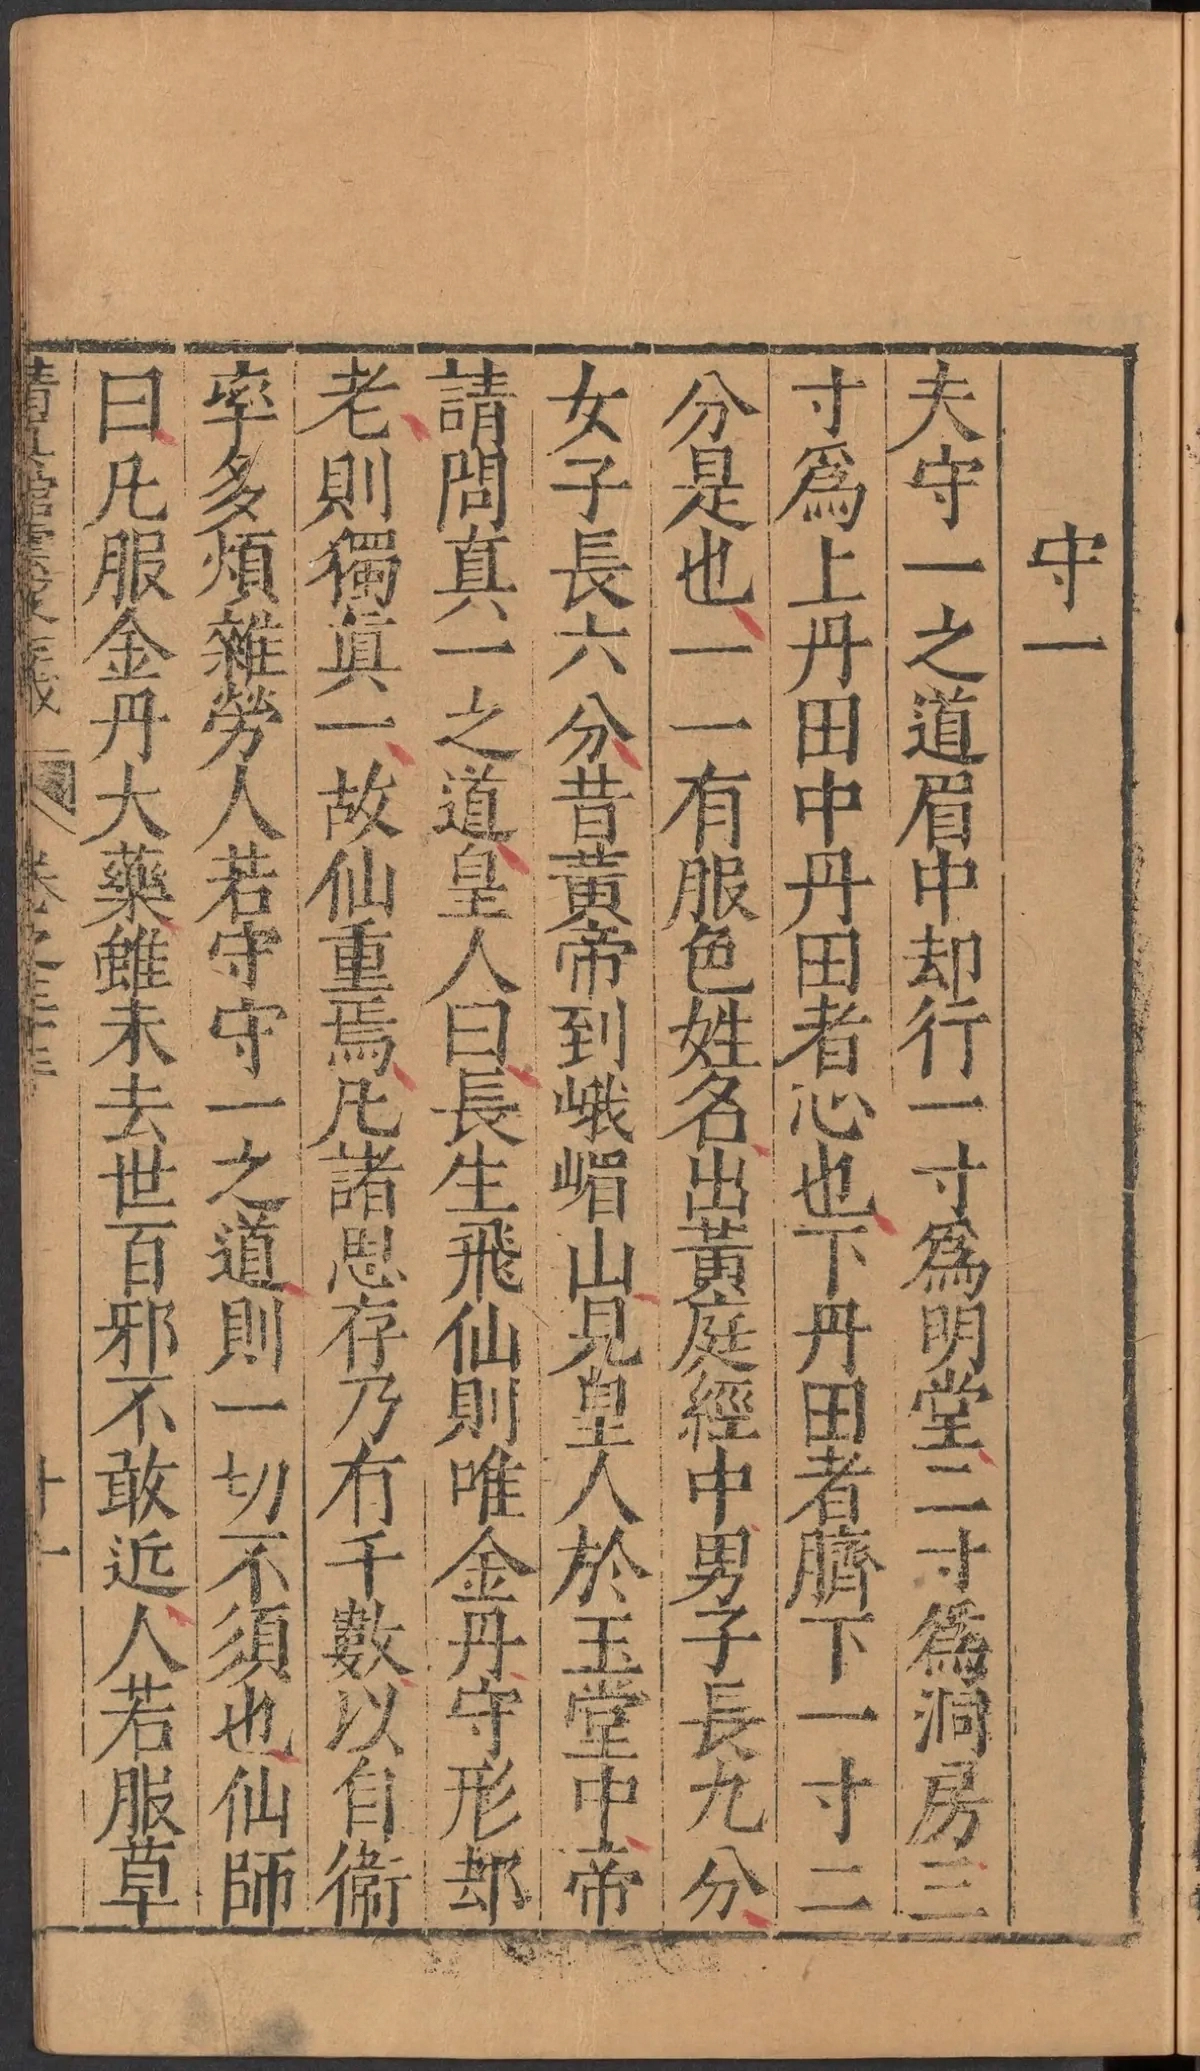 守一
夫守一之道眉中却行一寸爲明堂二寸爲洞房三
寸爲上丹田中丹田者心也下丹田者臍下一寸二
分是也一一有服色姓名出黃庭經中男子長九分
女子長六分昔黃帝到峨嵋山見皇人於玉堂中帝
請問真一之道皇人曰長生飛仙則唯金丹守形却
老則獨眞一故仙重焉凡諸思存乃有千數以自衞
率多煩雜勞人若守守一之道則一切不須也仙師
曰凡服金丹大藥雖未去世百邪不敢近人若服草